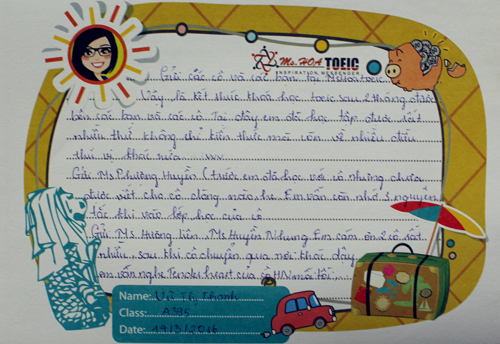 Ms. HOA TOEIC
INSPIRATION MESSENGER
Gửi các cô và các bạn tại Ms Hoa toeic
Vậy là kết thúc khoá học toeic sau 2 tháng được
bên các bạn và các cô. Tại đây em đã học tập được rất
nhiều thứ không chỉ kiến thức mà còn về nhiều điều
thú vị khác nữa vvv
Gửi Ms Phương Huyền (trước em đã học với cô nhưng chưa
được viết cho cô dòng nào he. Em vẫn còn nhớ 5 nguyên
tắc khi vào lớp học của cô
Gửi Ms. Hương Liên, Ms Huyền Nhung. Em cám ơn 2 cô rất
nhiều sau khi cô chuyển qua nơi khác dạy
em vẫn nghe Tender heart của cô HN mỗi tối
Name: Vũ Thị Thanh
Class: A395
Date: 19/3/2016